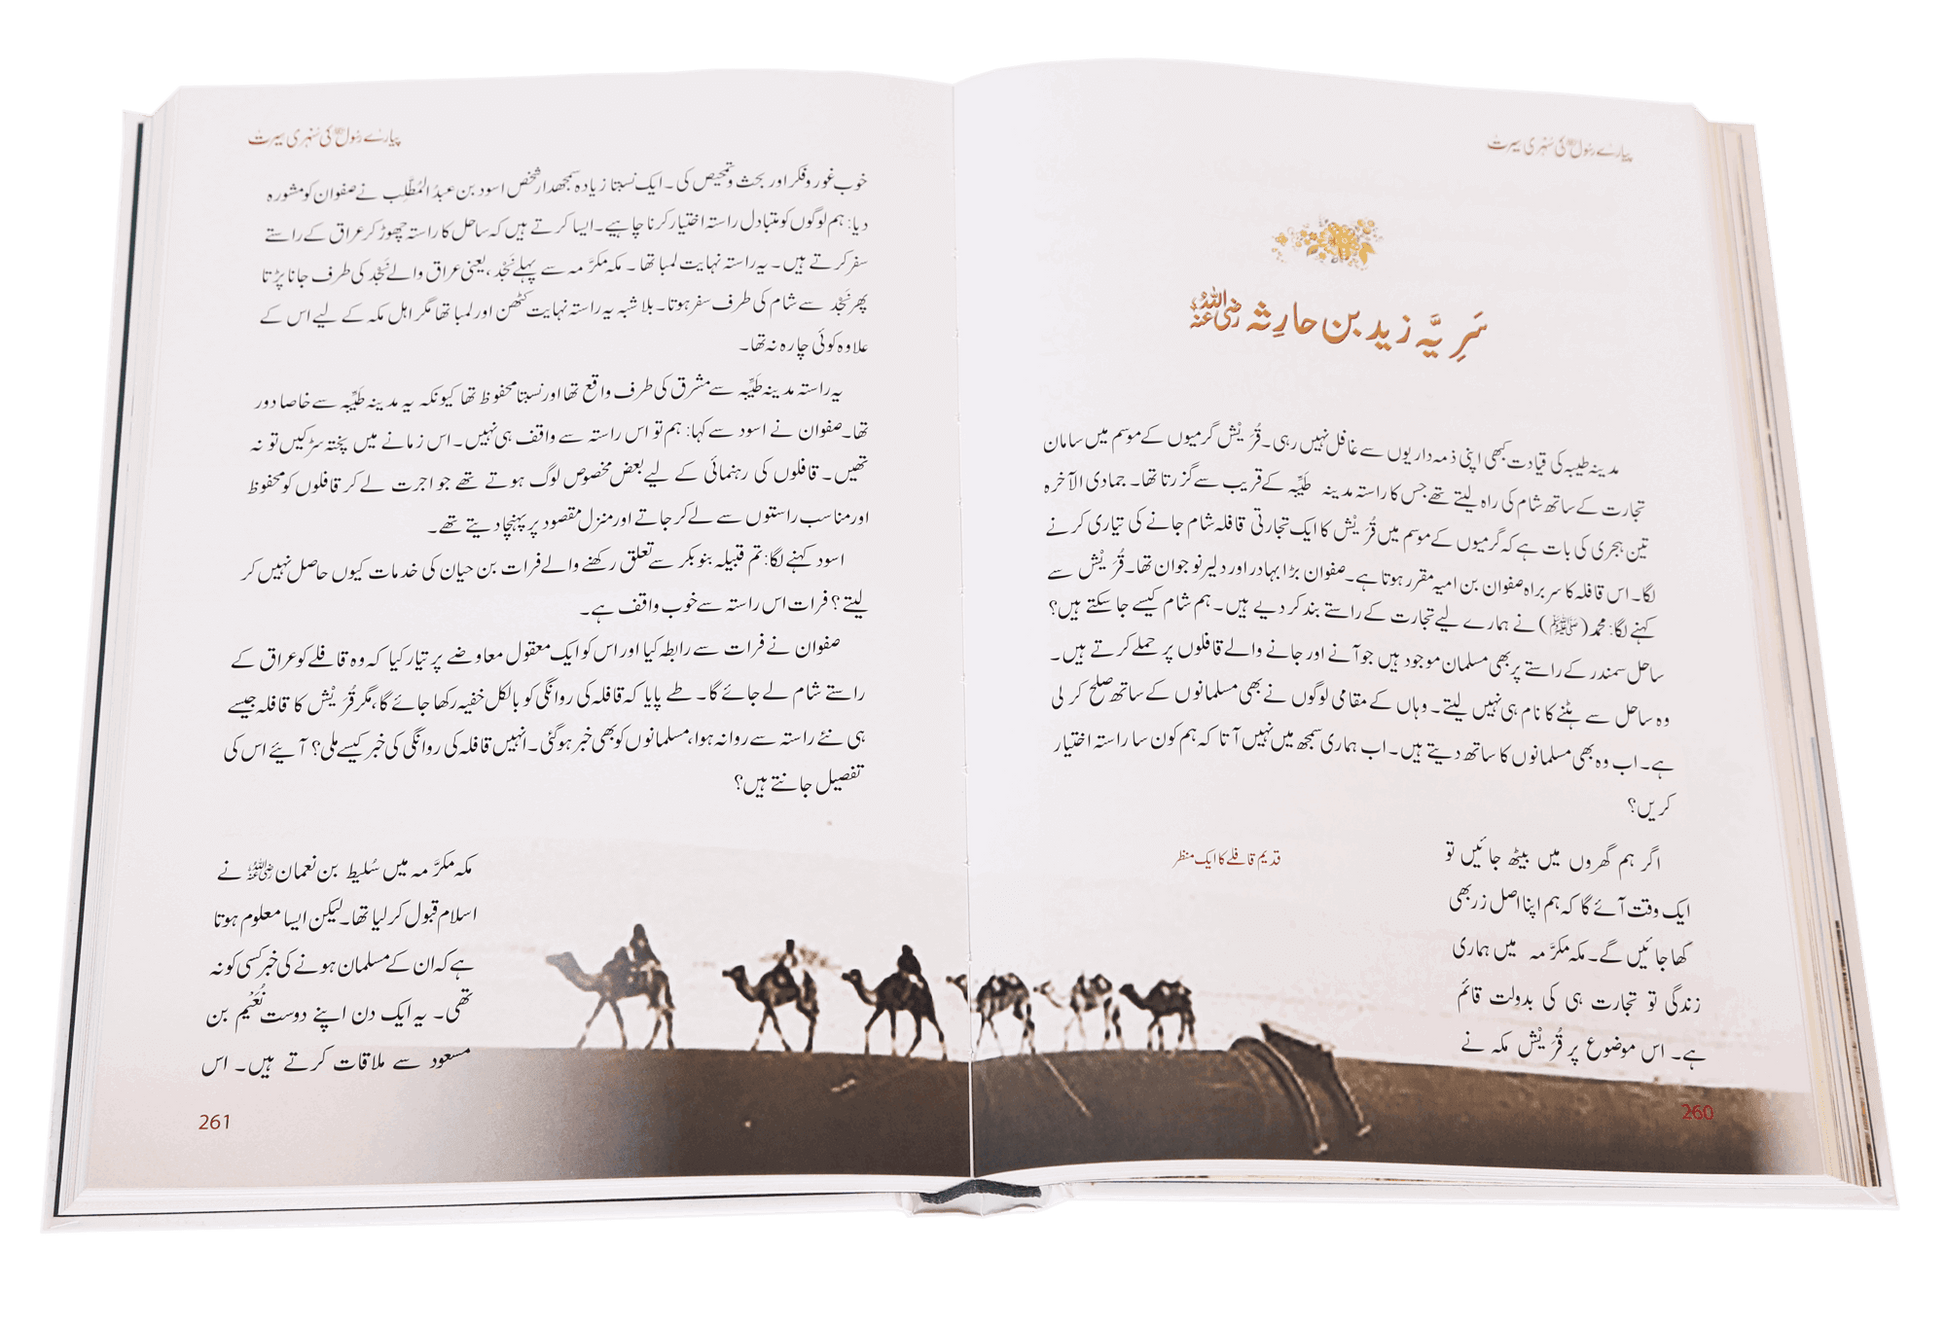 پیارے رسول ﷺ کی سنہری سیرت
سَرِیَّہ زید بن حارِثہ رضی اللہ عنہ
مدینہ طیبہ کی قیادت کبھی اپنی ذمہ داریوں سے غافل نہیں رہی۔ قُرَیْش گرمیوں کے موسم میں سامان
تجارت کے ساتھ شام کی راہ لیتے تھے جس کا راستہ مدینہ طَیِّبہ کے قریب سے گزرتا تھا۔ جمادی الآخرہ
تین ہجری کی بات ہے کہ گرمیوں کے موسم میں قُرَیْش کا ایک تجارتی قافلہ شام جانے کی تیاری کرنے
لگا۔ اس قافلہ کا سربراہ صفوان بن امیہ مقرر ہوتا ہے۔ صفوان بڑا بہادر اور دلیر نوجوان تھا۔ قُرَیْش سے
کہنے لگا: محمد (ﷺ) نے ہمارے لیے تجارت کے راستے بند کر دیے ہیں۔ ہم شام کیسے جا سکتے ہیں؟
ساحل سمندر کے راستے پر بھی مسلمان موجود ہیں جو آنے اور جانے والے قافلوں پر حملے کرتے ہیں۔
وہ ساحل سے ہٹنے کا نام ہی نہیں لیتے۔ وہاں کے مقامی لوگوں نے بھی مسلمانوں کے ساتھ صلح کر لی
ہے۔ اب وہ بھی مسلمانوں کا ساتھ دیتے ہیں۔ اب ہماری سمجھ میں نہیں آتا کہ ہم کون سا راستہ اختیار
کریں؟
اگر ہم گھروں میں بیٹھ جائیں تو
ایک وقت آئے گا کہ ہم اپنا اصل زر بھی
کھا جائیں گے۔ مکہ مکرَّمہ میں ہماری
زندگی تو تجارت ہی کی بدولت قائم
ہے۔ اس موضوع پر قُرَیْش مکہ نے
قدیم قافلے کا ایک منظر
260
پیارے رسول ﷺ کی سنہری سیرت
خوب غور و فکر اور بحث و تمحیص کی۔ ایک نسبتا زیادہ سمجھدار شخص اسود بن عبدُ المُطَّلِب نے صفوان کو مشورہ
دیا: ہم لوگوں کو متبادل راستہ اختیار کرنا چاہیے۔ ایسا کرتے ہیں کہ ساحل کا راستہ چھوڑ کر عراق کے راستے
سفر کرتے ہیں۔ یہ راستہ نہایت لمبا تھا۔ مکہ مکرَّمہ سے پہلے نَجْد، یعنی عراق والے نَجْد کی طرف جانا پڑتا
پھر نَجْد سے شام کی طرف سفر ہوتا۔ بلاشبہ یہ راستہ نہایت کٹھن اور لمبا تھا مگر اہل مکہ کے لیے اس کے
علاوہ کوئی چارہ نہ تھا۔
یہ راستہ مدینہ طَیِّبہ سے مشرق کی طرف واقع تھا اور نسبتا محفوظ تھا کیونکہ یہ مدینہ طَیِّبہ سے خاصا دور
تھا۔ صفوان نے اسود سے کہا: ہم تو اس راستہ سے واقف ہی نہیں۔ اس زمانے میں پختہ سڑکیں تو نہ
تھیں۔ قافلوں کی رہنمائی کے لیے بعض مخصوص لوگ ہوتے تھے جو اجرت لے کر قافلوں کو محفوظ
اور مناسب راستوں سے لے کر جاتے اور منزل مقصود پر پہنچا دیتے تھے۔
اسود کہنے لگا: تم قبیلہ بنو بکر سے تعلق رکھنے والے فرات بن حیان کی خدمات کیوں حاصل نہیں کر
لیتے؟ فرات اس راستہ سے خوب واقف ہے۔
صفوان نے فرات سے رابطہ کیا اور اس کو ایک معقول معاوضے پر تیار کیا کہ وہ قافلے کو عراق کے
راستے شام لے جائے گا۔ طے پایا کہ قافلہ کی روانگی کو بالکل خفیہ رکھا جائے گا، مگر قُرَیْش کا قافلہ جیسے
ہی نئے راستہ سے روانہ ہوا، مسلمانوں کو بھی خبر ہو گئی۔ انہیں قافلہ کی روانگی کی خبر کیسے ملی؟ آیئے اس کی
تفصیل جانتے ہیں؟
مکہ مکرَّمہ میں سُلیط بن نعمان رضی اللہ عنہ نے
اسلام قبول کر لیا تھا۔ لیکن ایسا معلوم ہوتا
ہے کہ ان کے مسلمان ہونے کی خبر کسی کو نہ
تھی۔ یہ ایک دن اپنے دوست نُعَیْم بن
مسعود سے ملاقات کرتے ہیں۔ اس
261